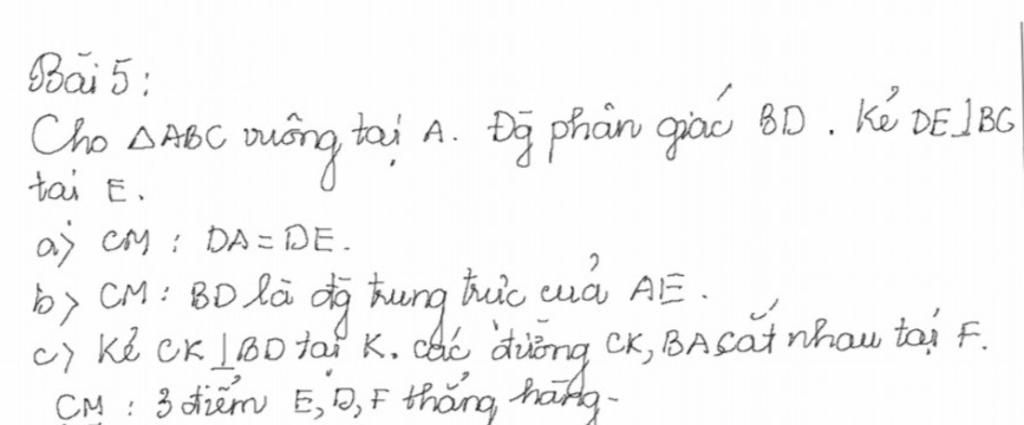 Bài 5:
Cho △ABC vuông tại A. Đg phân giác BD. Kẻ DE⊥BC
tại E.
a) CM: DA = DE.
b) CM: BD là đg trung trực của AE.
c) Kẻ CK⊥BD tại K. các đường CK, BA cắt nhau tại F.
CM: 3 điểm E, D, F thẳng hàng.